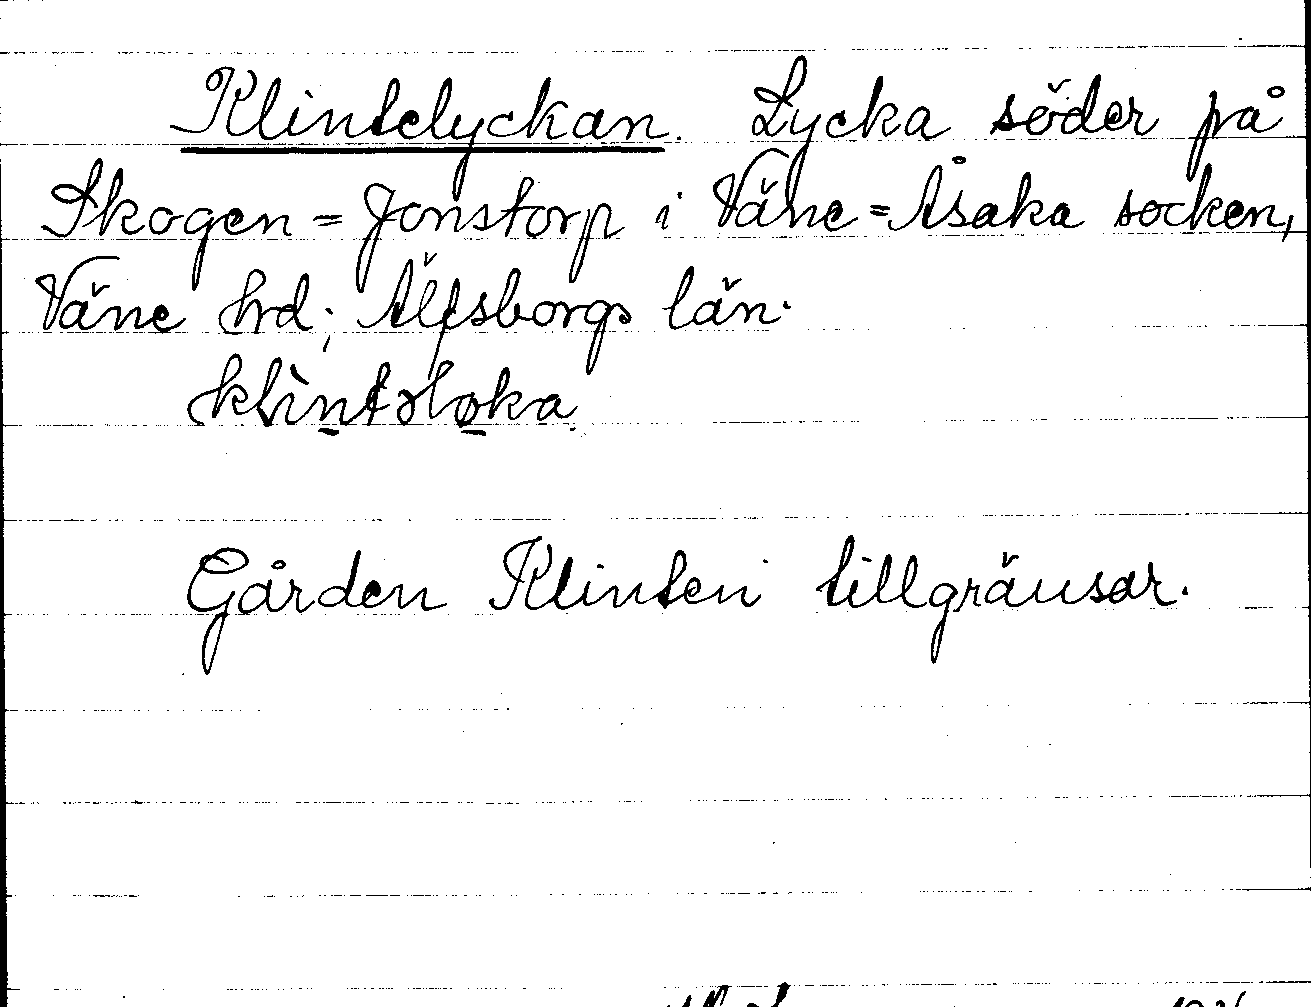 Klintelyckan. Lycka söder på
Skogen = Jonstorp i Väne = Åsaka socken,
Väne hrd; Älfsborgs län.
klìntəlo̠ka.
Gården Klinten tillgränsar.